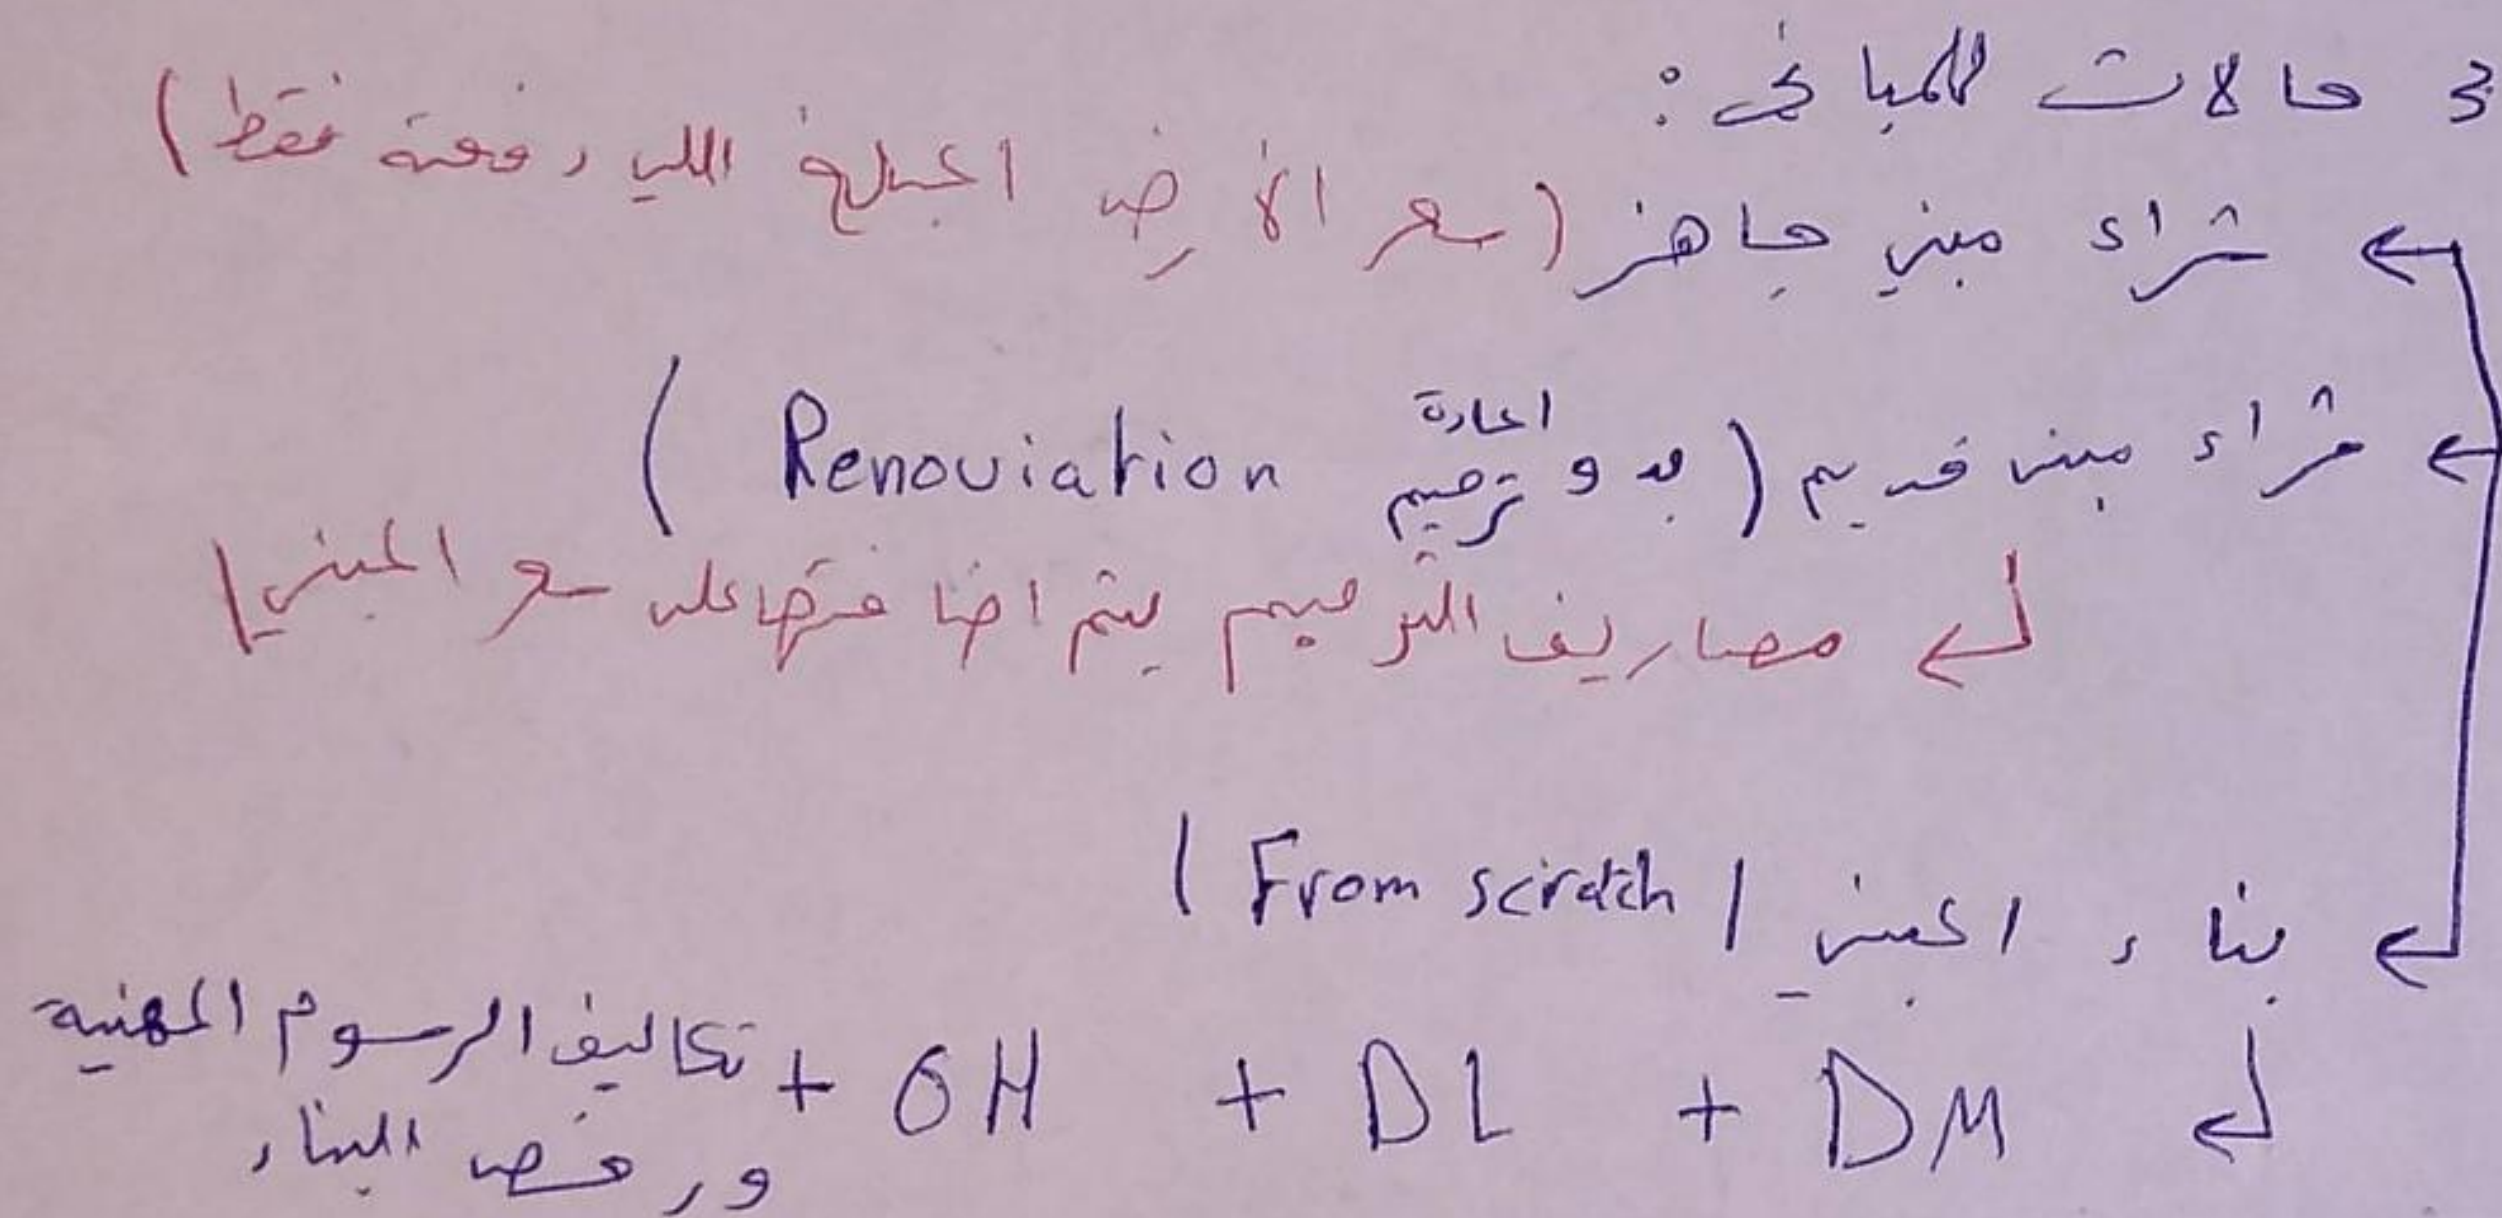 3 حالات للمباني :
شراء مبني جاهز (سعر الأرض المبلغ اللي دفعته فقط)
شراء مبني قديم (بدو اعادة ترميم Renouiation)
مصاريف الترميم يتم اضافتها على سعر المبني
بناء المبني (From scratch)
DM + DL + OH + تكاليف الرسوم المهنية
ورخص البناء